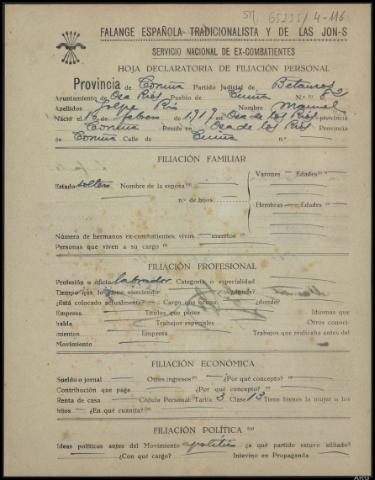 65235/4-116
FALANGE ESPAÑOLA TRADICIONALISTA Y DE LAS JON-S
SERVICIO NACIONAL DE EX-COMBATIENTES
HOJA DECLARATORIA DE FILIACIÓN PERSONAL
Provincia de Coruña Partido Judicial de Betanzos
Ayuntamiento de Oza Ríos Pueblo de Cuiña N.º 82
Apellidos Golpe Nombre Manuel
Nació el 16 de febrero de 1917 en Oza de los Ríos provincia
Coruña Reside en Oza de los Ríos provincia
de Coruña Calle de Cuiña n.º
FILIACIÓN FAMILIAR
Estado soltero Nombre de la esposa Varones Edades
n.º de hijos
Hembras Edades
Número de hermanos ex-combatientes, vivos muertos
Personas que viven a su cargo
FILIACIÓN PROFESIONAL
Profesión u oficio labrador Categoría o especialidad
Tiempo que lo viene ejerciendo
¿Está colocado actualmente? Cargo que ocupa ¿dónde?
Empresa Títulos que posee Idiomas que
habla Trabajos especiales Otros conoci-
mientos Empresa Trabajos que realizaba antes del
Movimiento
FILIACIÓN ECONÓMICA
Sueldo o jornal Otros ingresos ¿Por qué concepto?
Contribución que paga ¿Por qué concepto?
Renta de casa Cédula Personal: Tarifa 3 Clase 13 Tiene bienes la mujer o los
hijos ¿En qué cuantía?
FILIACIÓN POLÍTICA
Ideas políticas antes del Movimiento apolítico ¿a qué partido estuvo afiliado?
¿Con qué cargo? Intervino en Propaganda